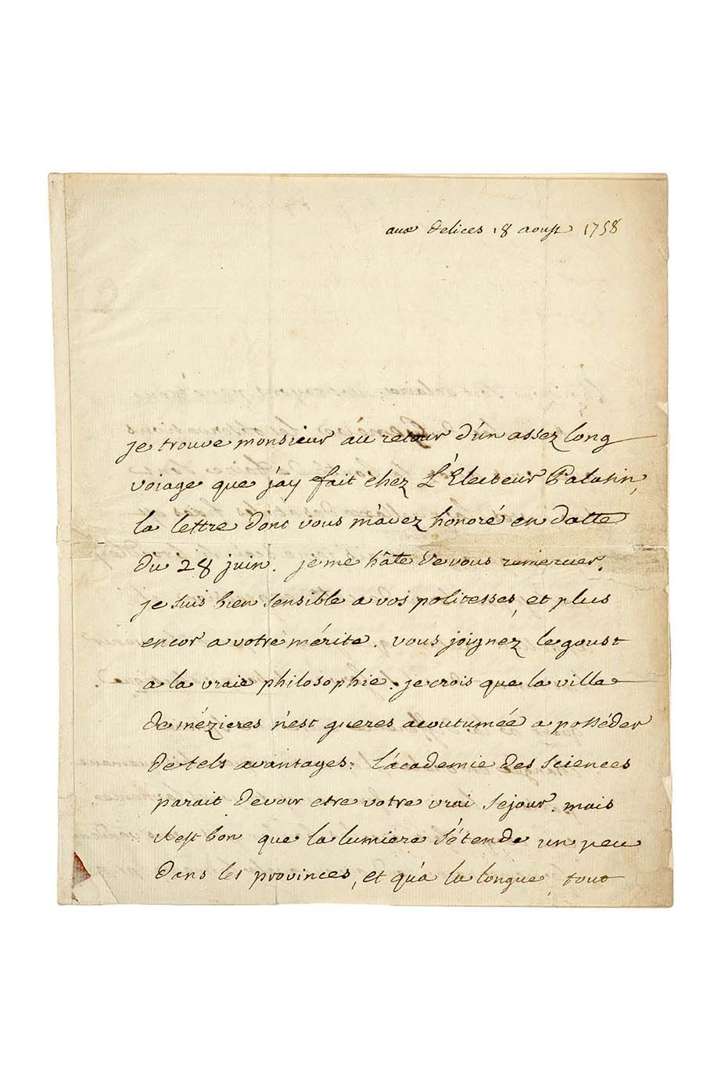 aux delices 18 aoust 1758
je trouve monsieur au retour d'un assez long
voiage que j'ay fait chez L'Electeur Palatin,
la lettre dont vous m'avez honoré en datte
du 28 juin. je me hâte de vous remercier.
je suis bien sensible a vos politesses, et plus
encor a votre mérite. vous joignez le goust
a la vraie philosophie. je crois que la ville
de mézieres n'est gueres acoutumée a posséder
de tels avantages. l'académie des sciences
parait devoir etre votre vrai séjour. mais
il est bon que la lumiere s'étende un peu
dans les provinces, et qu'à la longue, tout